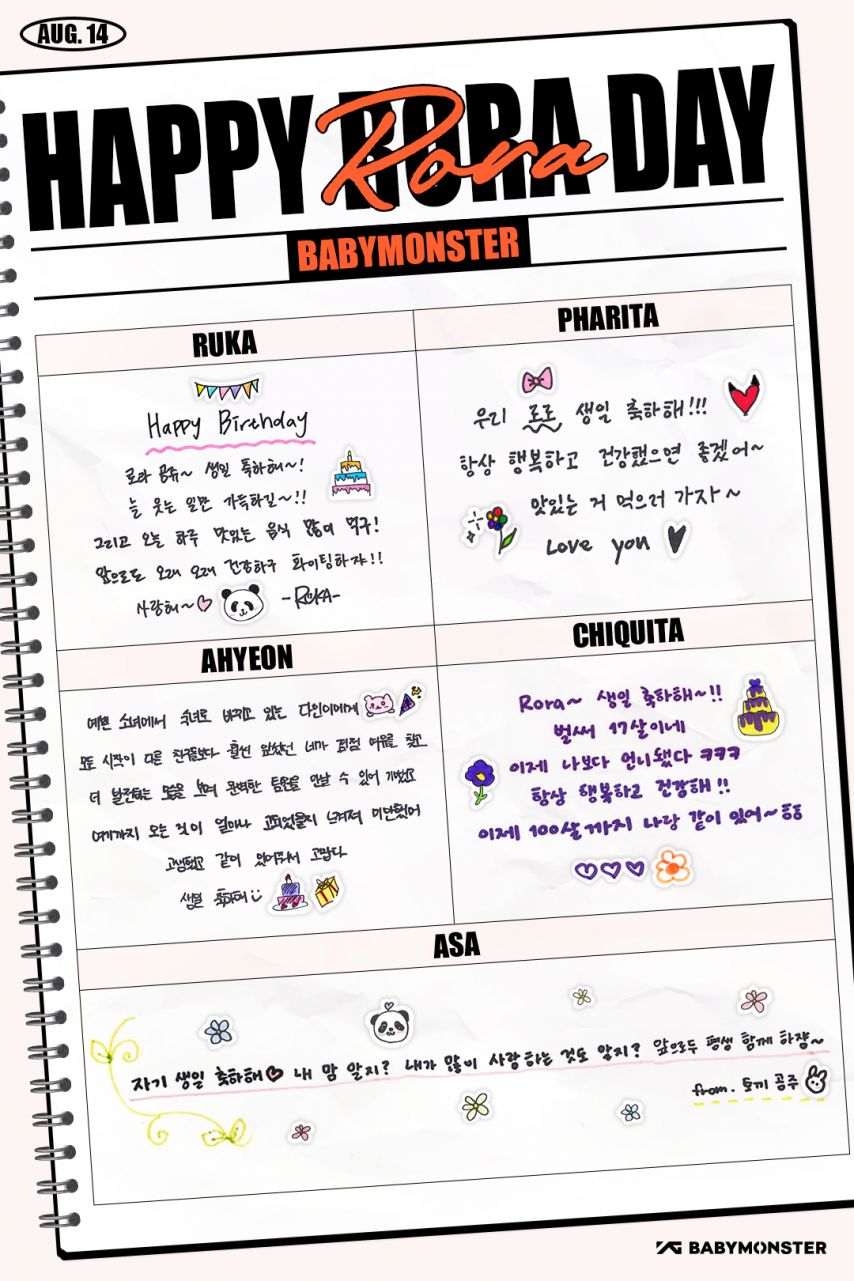 AUG. 14
HAPPY RORA DAY
Rora
BABYMONSTER
RUKA
Happy Birthday
로라 공쥬~ 생일 축하해~!
늘 웃는 일만 가득하길~!!
그리고 오늘 하루 맛있는 음식 많이 먹구!
앞으로도 오래 오래 건강하구 화이팅하쟈!!
사랑해~♡
-RUKA-
PHARITA
우리 로로 생일 축하해!!!
항상 행복하고 건강했으면 좋겠어~
맛있는 거 먹으러 가자~
Love you
AHYEON
예쁜 소녀에서 숙녀로 바뀌고 있는 다인이에게
모든 시작이 다른 친구들보다 훨씬 네가 점점 여유를 찾고
더 발전하는 모습을 보며 완벽한 팀원을 만날 수 있어 기뻤고
여기까지 오는 것이 얼마나 고되었을지 느껴져 미안했어
고생했고 같이 있어줘서 고맙다
생일 축하해
CHIQUITA
Rora~ 생일 축하해~!!
벌써 17살이네
이제 나보다 언니됐다 ㅋㅋㅋ
항상 행복하고 건강해!!
이제 100살까지 나랑 같이 있어~ㅎㅎ
♡♡♡
ASA
자기 생일 축하해♡ 내 맘 알지? 내가 많이 사랑하는 것도 알지? 앞으로두 평생 함께 하쟝~
from. 토끼 공주
YG BABYMONSTER